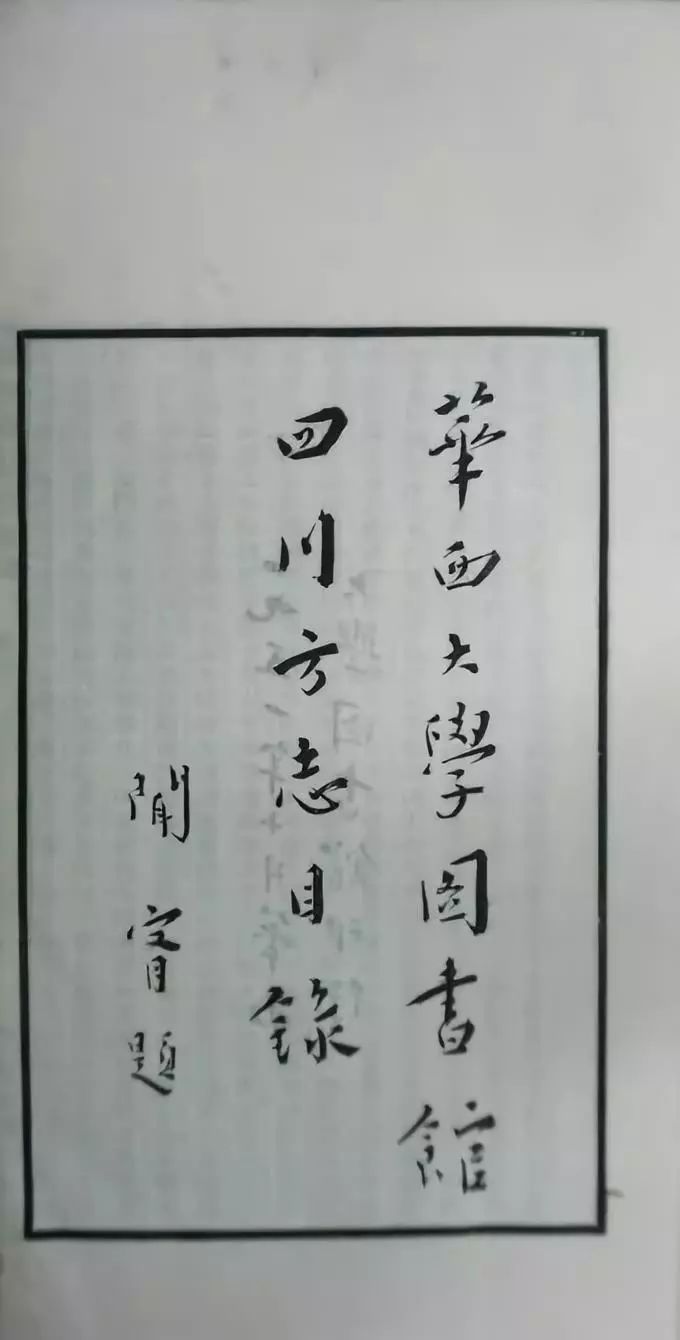 華西大學图書館
四川方志目錄
聞宥題